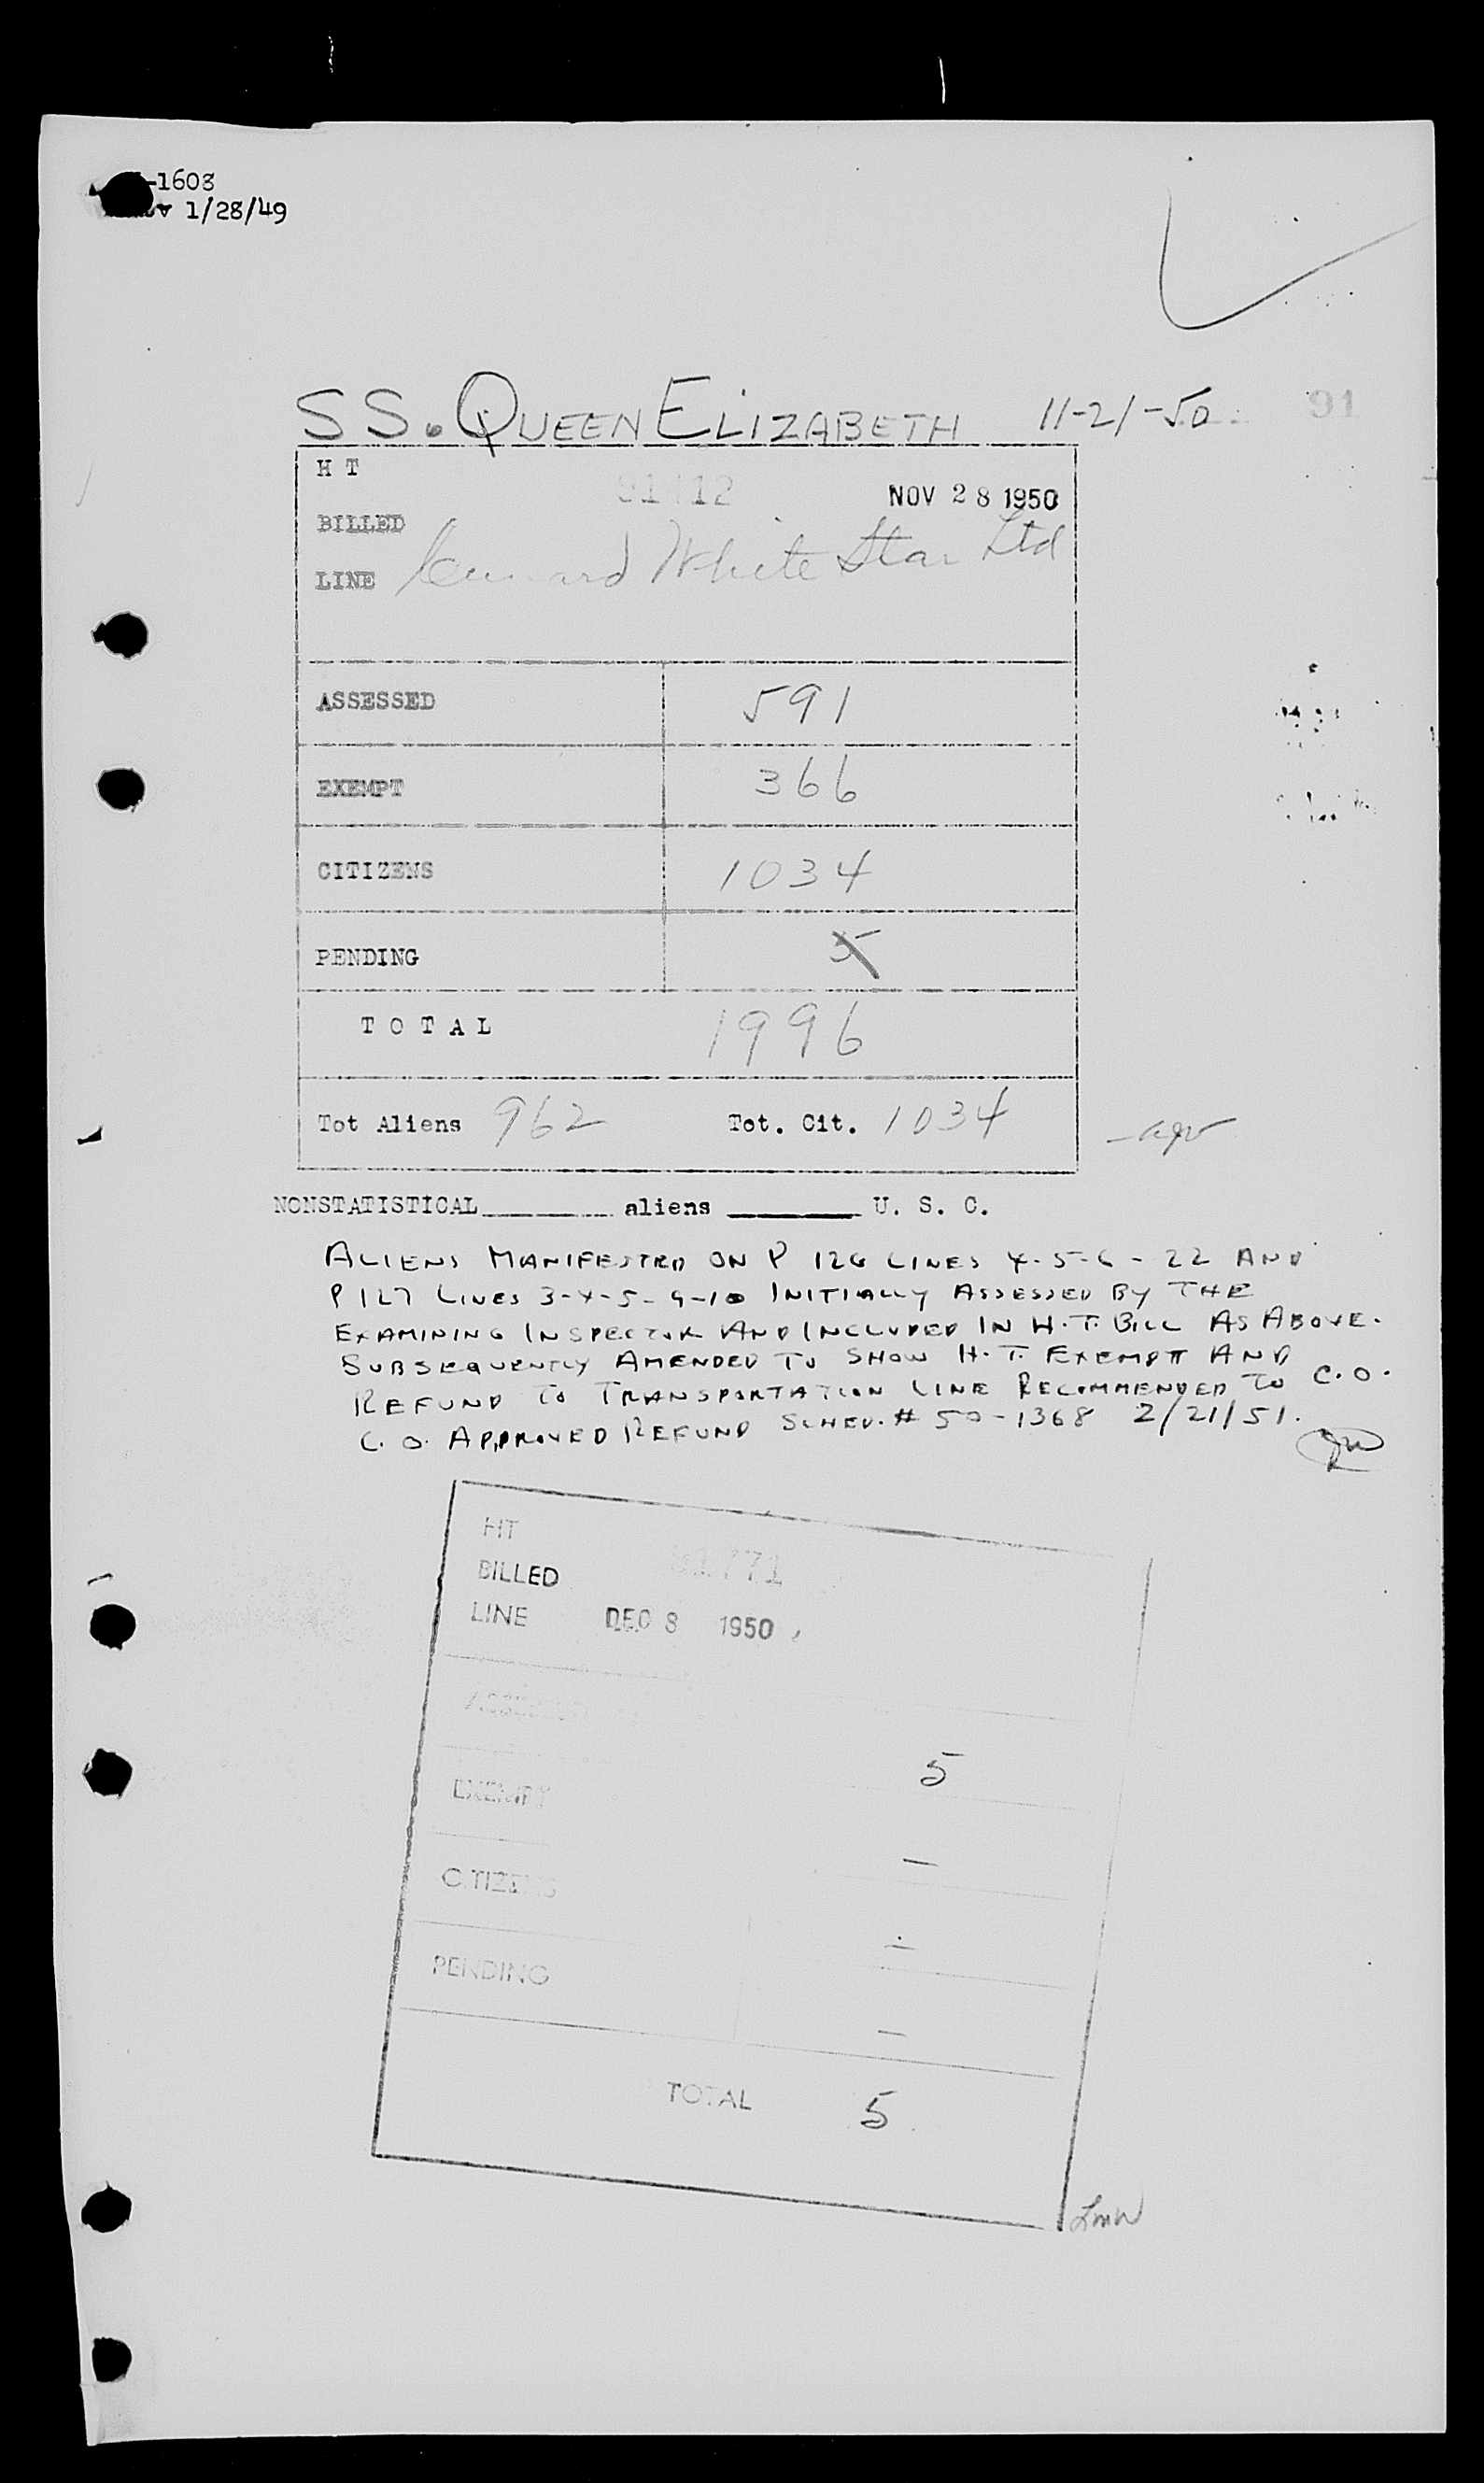 -1603
1/28/49
SS. QUEEN ELIZABETH 11-21-50 91
H T
NOV 28 1950
BILLED
LINE Cunard White Star Ltd
ASSESSED 591
EXEMPT 366
CITIZENS 1034
PENDING 5
TOTAL 1996
Tot Aliens 962 Tot. Cit. 1034
NONSTATISTICAL aliens U. S. C.
ALIENS MANIFESTED ON P 126 LINES 4-5-6-22 AND
P 127 LINES 3-4-5-9-10 INITIALLY ASSESSED BY THE
EXAMINING INSPECTOR AND INCLUDED IN H.T. BILL AS ABOVE.
SUBSEQUENTLY AMENDED TO SHOW H.T. EXEMPT AND
REFUND TO TRANSPORTATION LINE RECOMMENDED TO C.O.
C.O. APPROVED REFUND SCHED. # 50-1368 2/21/51.
HT
BILLED
LINE DEC 8 1950
ASSESSED 5
EXEMPT —
CITIZENS —
PENDING —
TOTAL 5
LMW